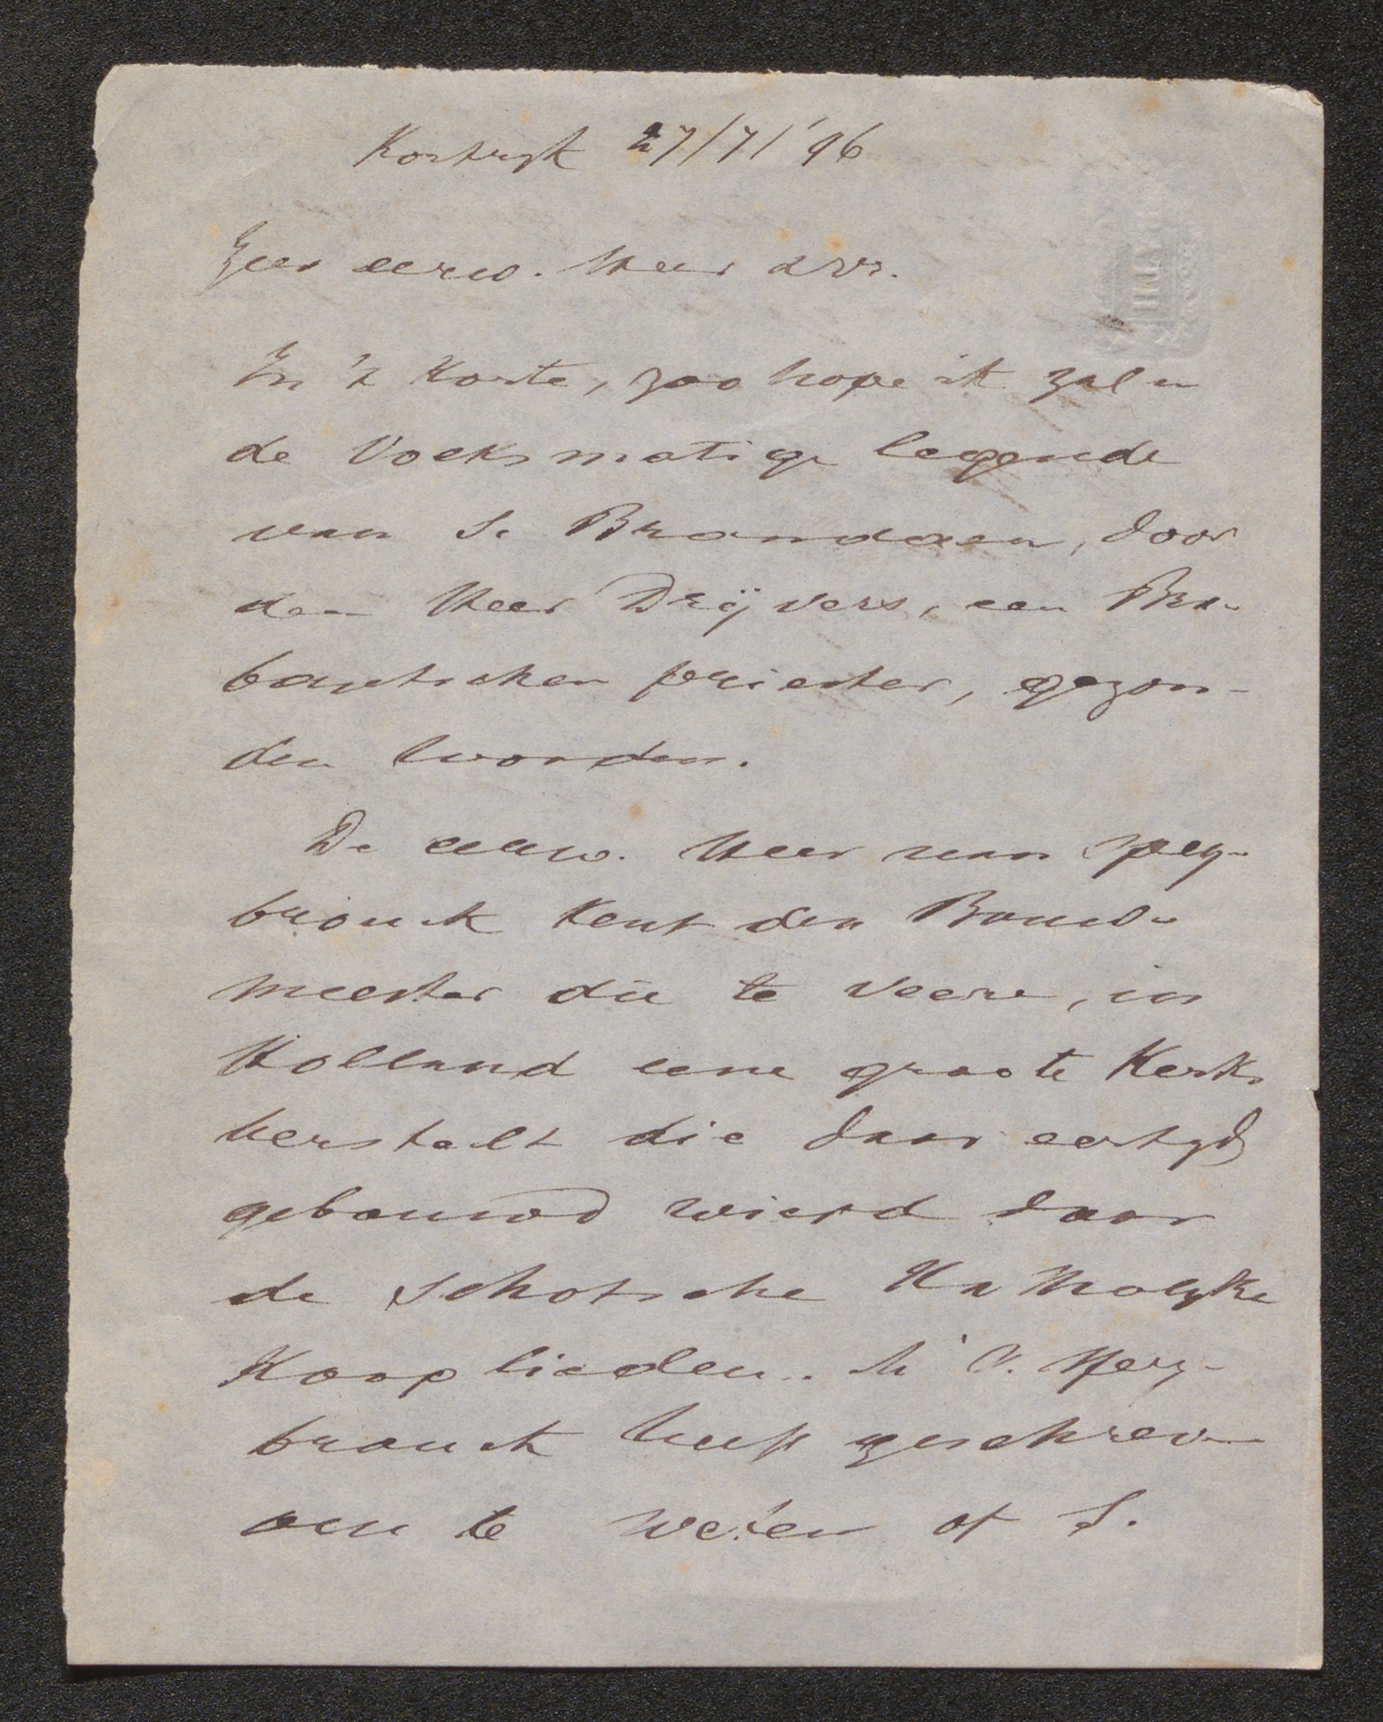 Kortryk 27/7/'96
Zeer eerw. Heer
In 't korte, zoo hope ik zal u
de Volksmatige legende
van S. Brandaen, door
den Heer Drÿvers, een Bra-
bantschen priester, gezon-
den worden.
De eerw. Heer van Spey-
brouck kent den Bouw-
meester die te Veere, in
Holland eene groote Kerk
herstelt die daar eertyds
gebouwd wierd door
de schotsche Katholyke
Kooplieden. M' V. Spey-
brouck heeft geschreven
om te weten of S.